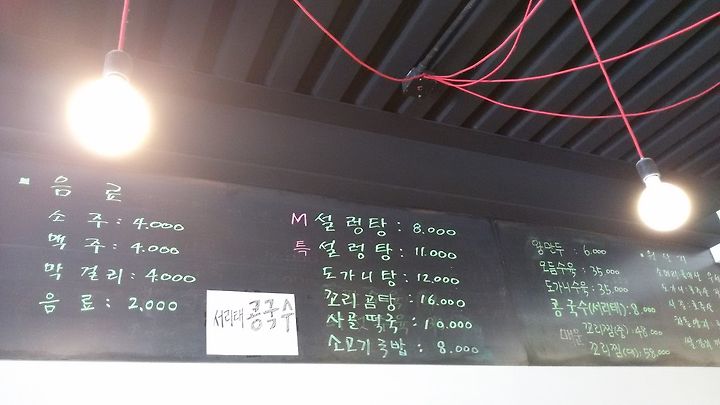 음료
소주 : 4.000
맥주 : 4.000
막걸리 : 4000
음료 : 2.000
서리태 콩국수
M 설렁탕 : 8.000
특 설렁탕 : 11.000
도가니탕 : 12.000
꼬리곰탕 : 16.000
사골떡국 : 10.000
소고기국밥 : 8.000
왕만두 : 6.000
모듬수육 : 35.000
도가니수육 : 35.000
콩국수(서리태) : 8.000
꼬리찜(중) : 48.000
매운
꼬리찜(대) : 58.000
원산지